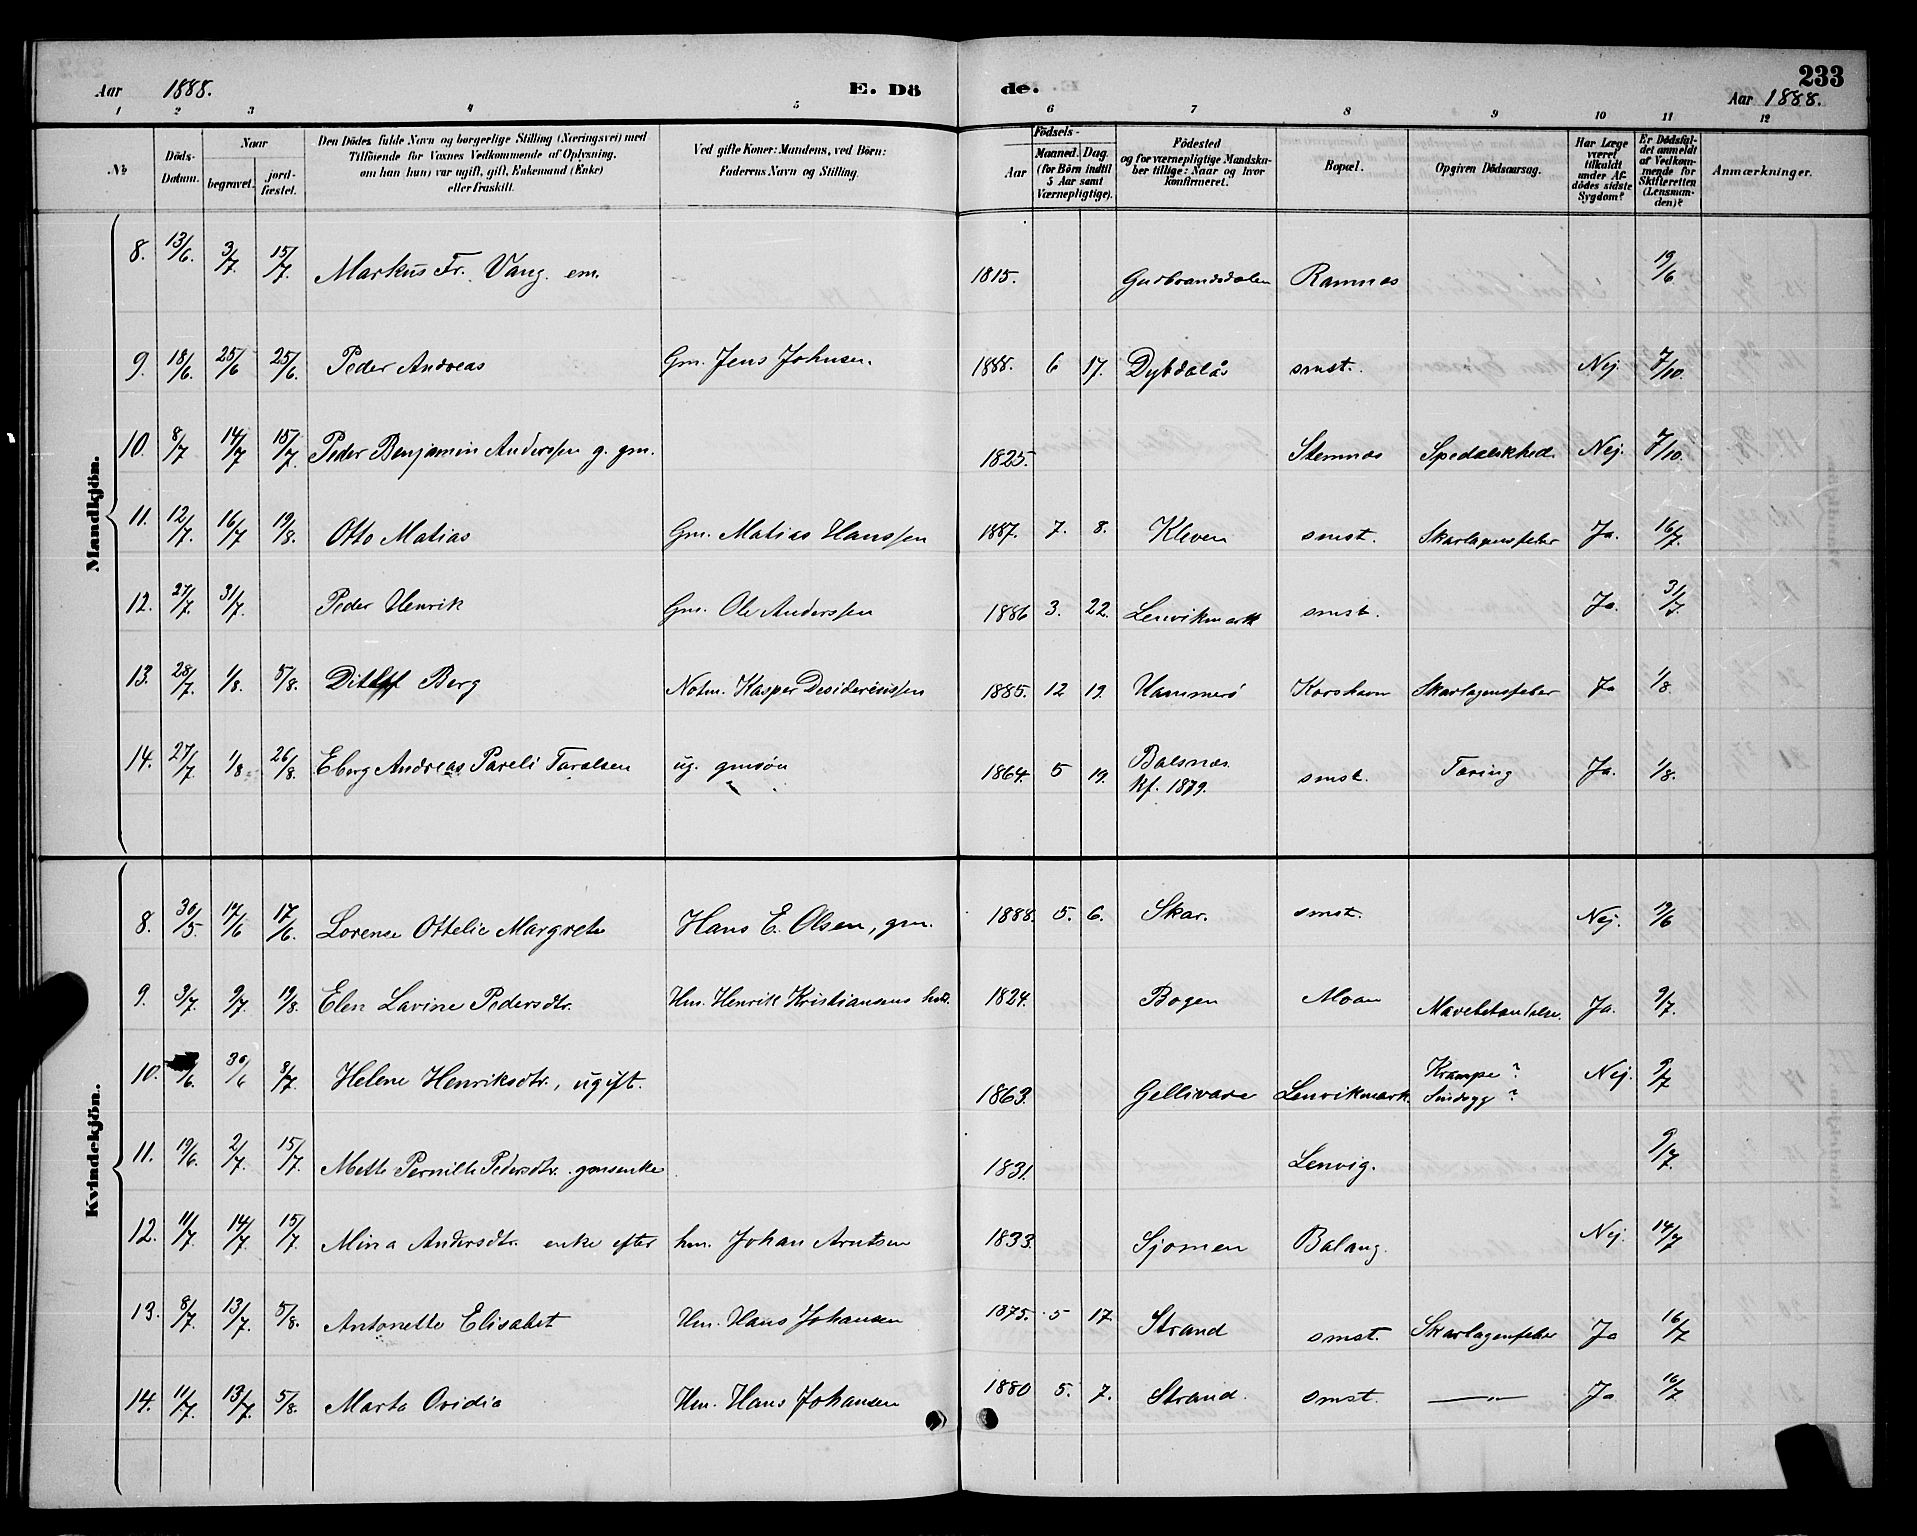 233
Aar 1888. E. Dö de. Aar 1888.
1 2 3 4 5 6 7 8 9 10 11 12
№
Döds-Datum.
Naar
begravet.
jord-fæstet.
Den Dödes fulde Navn og borgerlige Stilling (Næringsvei) med
Tilföiende for Voxnes Vedkommende af Oplysning,
om han (hun) var ugift, gift, Enkemand (Enke)
eller fraskilt.
Ved gifte Koner: Mandens, ved Börn:
Faderens Navn og Stilling.
Födsels-
Aar
Maaned. Dag.
(for Börn indtil
5 Aar samt
Værnepligtige).
Födested
og for værnepligtige Mandska-
ber tillige: Naar og hvor
konfirmeret.
Bopæl.
Opgiven Dödsaarsag.
Har Læge
været
tilkaldt
under Af-
dödes sidste
Sygdom?
Er Dödsfal-
det anmeldt
af Vedkom-
mende for
Skifteretten
(Lensman-
den)?
Anmærkninger.
Mandkjön.
8. 13/6. 3/7. 15/7. Markus Fr. Vang. em. 1815. Gudbrandsdalen Ramnas 19/6
9. 18/6. 25/6 25/6. Peder Andreas Gm. Jens Johnsen. 1888. 6 17. Dybdalås smst. Nej. 7/10.
10. 8/7 14/7 15/7. Peder Benjamin Anderssen g. gm. 1825. Stemnas Spedalskhed Nej. 7/10.
11. 12/7. 16/7 19/8. Otto Matias Gm. Matias Hanssen 1887. 7. 8. Kleven smst. Skarlagensfeber Ja. 16/7.
12. 27/7. 31/7. Peder Henrik Gm. Ole Anderssen 1886 3. 22. Lenvikmark smst. Ja. 31/7.
13. 28/7. 1/8. 5/8. Ditlef Berg Notm. Kasper Desideriussen 1885. 12 19. Hammerö Korshavn Skarlagensfeber Ja 1/8.
14. 27/7. 1/8 26/8. Eberg Andreas Pareli Taralsen ug. gmsøn 1864. 5 19. Balsnas. Kf. 1879. smst. Tæring Ja. 1/8.
Kvindekjön.
8. 30/5. 17/6 17/6. Lorense Ottelie Margrete Hans E. Olsen, gm. 1888. 5. 6. Skar. smst. Nej. 19/6
9. 3/7. 9/7. 19/8. Elen Lavine Pedersdtr. Hm. Henrik Kristiansens 1824. Bogen Moan Mavebetændelse. Ja. 9/7.
10. /6. 30/6 8/7. Helene Henriksdtr., ugift. 1863. Gellivare Lenvikmark. Krampe? Sindsyg? Nej. 9/7
11. 19/6. 2/7. 15/7. Mette Pernille Pedersdtr. gmsenke 1831. Lenvig. 9/7.
12. 11/7. 14/7. 15/7. Mina Andersdtr. enke efter hm. Johan Arntsen 1833. Sjomen Balang. Nej. 14/7
13. 8/7. 13/7. 5/8. Antonette Elisabet Hm. Hans Johansen 1875. 5 17. Strand smst. Skarlagenfeber Ja 16/7
14. 11/7. 13/7. 5/8. Marta Ovidia Hm. Hans Johansen 1880 5. 7. Strand. smst. —"— Ja 16/7